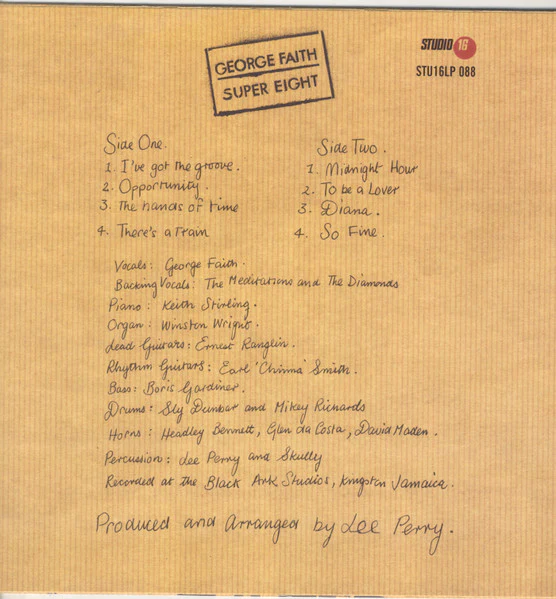 GEORGE FAITH
SUPER EIGHT
STUDIO 16
STU16LP 088
Side One.
1. I've got the groove.
2. Opportunity.
3. The hands of time
4. There's a train
Side Two.
1. Midnight Hour
2. To be a Lover
3. Diana.
4. So Fine.
Vocals: George Faith.
Backing Vocals: The Meditations and The Diamonds
Piano: Keith Stirling.
Organ: Winston Wright.
Lead Guitars: Ernest Ranglin.
Rhythm Guitars: Earl 'Chinna' Smith.
Bass: Boris Gardiner.
Drums: Sly Dunbar and Mikey Richards
Horns: Headley Bennett, Glen da Costa, David Maden.
Percussion: Lee Perry and Skully
Recorded at the Black Ark Studios, Kingston Jamaica.
Produced and Arranged by Lee Perry.